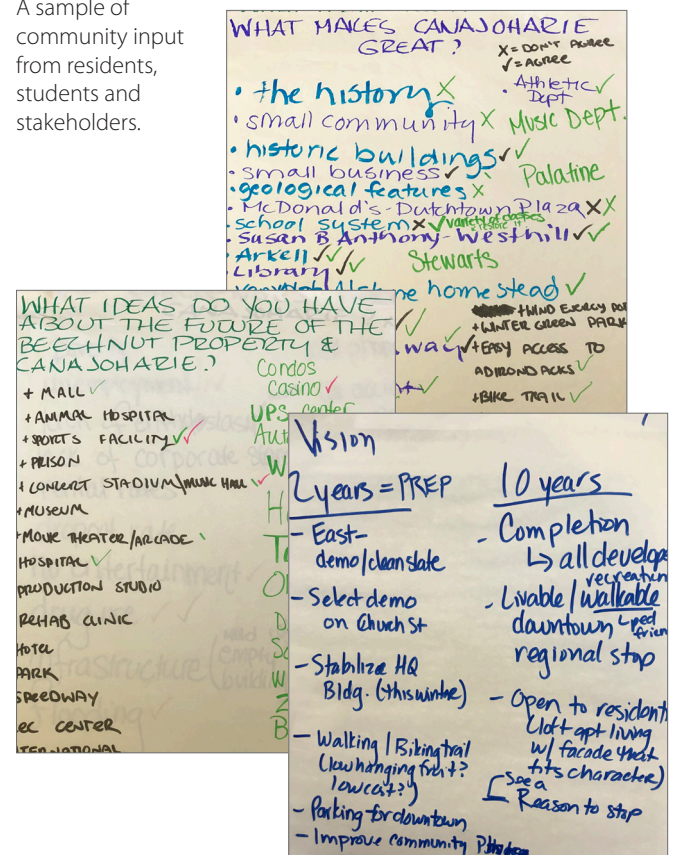 A sample of
community input
from residents,
students and
stakeholders.
WHAT MAKES CANAJOHARIE
GREAT?
X = DON'T AGREE
✓ = AGREE
• the history X
• Athletic ✓
Dept
• small community X
Music Dept.
• historic buildings ✓✓
• small business ✓
Palatine
• geological features X
• McDonald's - Dutchtown Plaza X X
• school system X ✓ variety of
• Susan B Anthony - Westhill ✓✓
• Arkell ✓✓✓
Stewarts
• Library ✓✓
homestead ✓
+ WIND ENERGY
+ WINTER GREEN PARK
way ✓
+ EASY ACCESS TO
ADIRONDACKS ✓
+ BIKE TRAIL ✓
WHAT IDEAS DO YOU HAVE
ABOUT THE FUTURE OF THE
BEECHNUT PROPERTY &
CANAJOHARIE?
Condos
Casino ✓
UPS center
+ MALL ✓
+ ANIMAL HOSPITAL
+ SPORTS FACILITY ✓✓
+ PRISON
+ CONCERT STADIUM/MUSIC HALL ✓
+ MUSEUM
+ MOVIE THEATER/ARCADE
HOSPITAL ✓
PRODUCTION STUDIO
REHAB CLINIC
HOTEL
PARK
SPEEDWAY
EC CENTER
Vision
2 years = PREP
- East-
demo/clean slate
- Select demo
on Church St
- Stabilize HQ
Bldg. (this winter)
- Walking / Biking trail
(low hanging fruit?
low cost?)
- Parking for downtown
- Improve community
10 years
- Completion
↳ all develop
recreation
- Livable / walkable
downtown ↳ ped
frien
regional stop
- Open to resident
(loft apt living
w/ facade that
fits character)
See a
Reason to stop